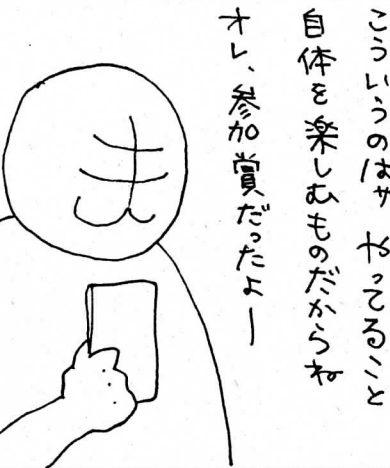 こういうのはサ やってること
自体を楽しむものだからね
オレ、参加賞だったよー
ま